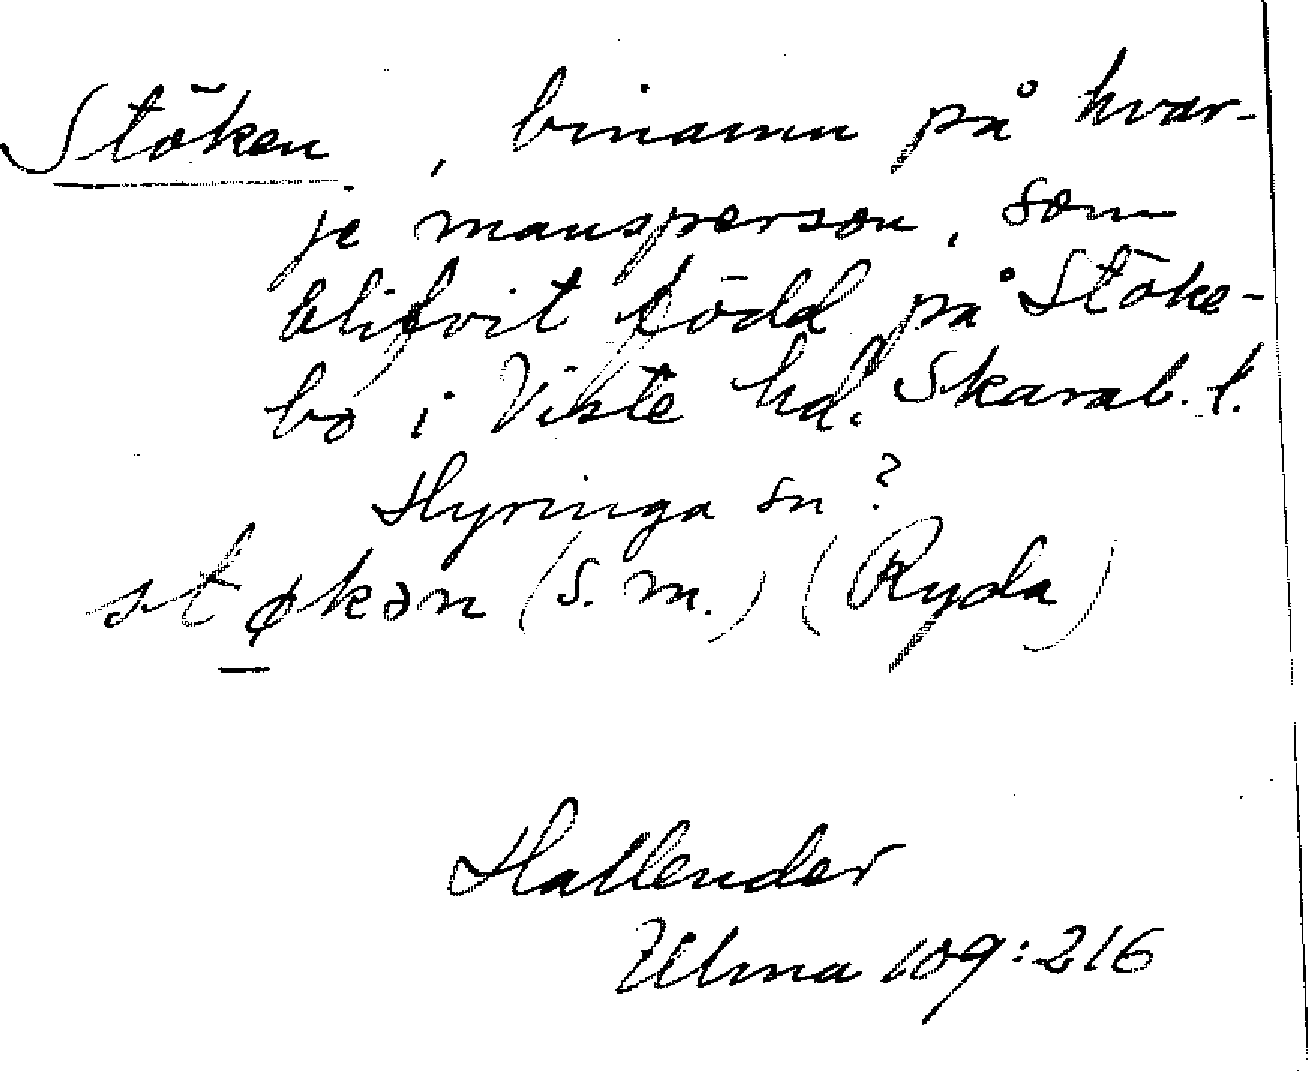 Stöken, binamn på hvar-
je mansperson, som
blifvit född på Stöke-
bo i Viste hd. Skarab. l.
Hyringa sn?
støkən (s. m.) (Ryda)
Hallender
Ulma 109:216